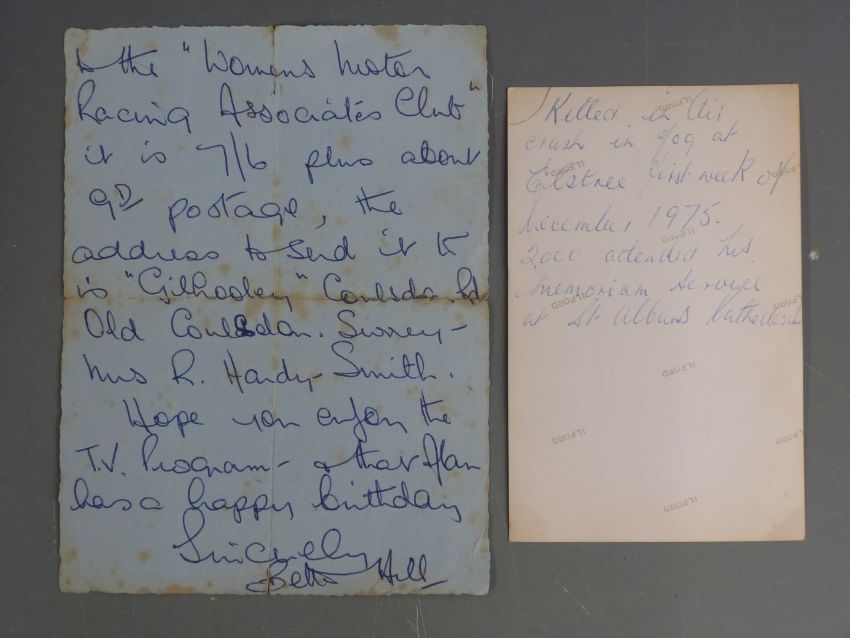 & the "Womens Motor
Racing Associates Club"
it is 7/6 plus about
9D postage, the
address to send it to
is "Gilhooley" Coulsdon Rd
Old Coulsdon. Surrey -
Mrs R. Hardy-Smith.
Hope you enjoy the
T.V. Program - & that Alan
has a happy birthday
Sincerely
Bette Hill
Killed in Air
crash in fog at
Elstree first week of
December 1975.
2000 attended his
Memoriam Service
at St Albans Cathedral
ILFORD
ILFORD
ILFORD
ILFORD
ILFORD
ILFORD
ILFORD
ILFORD
ILFORD
ILFORD